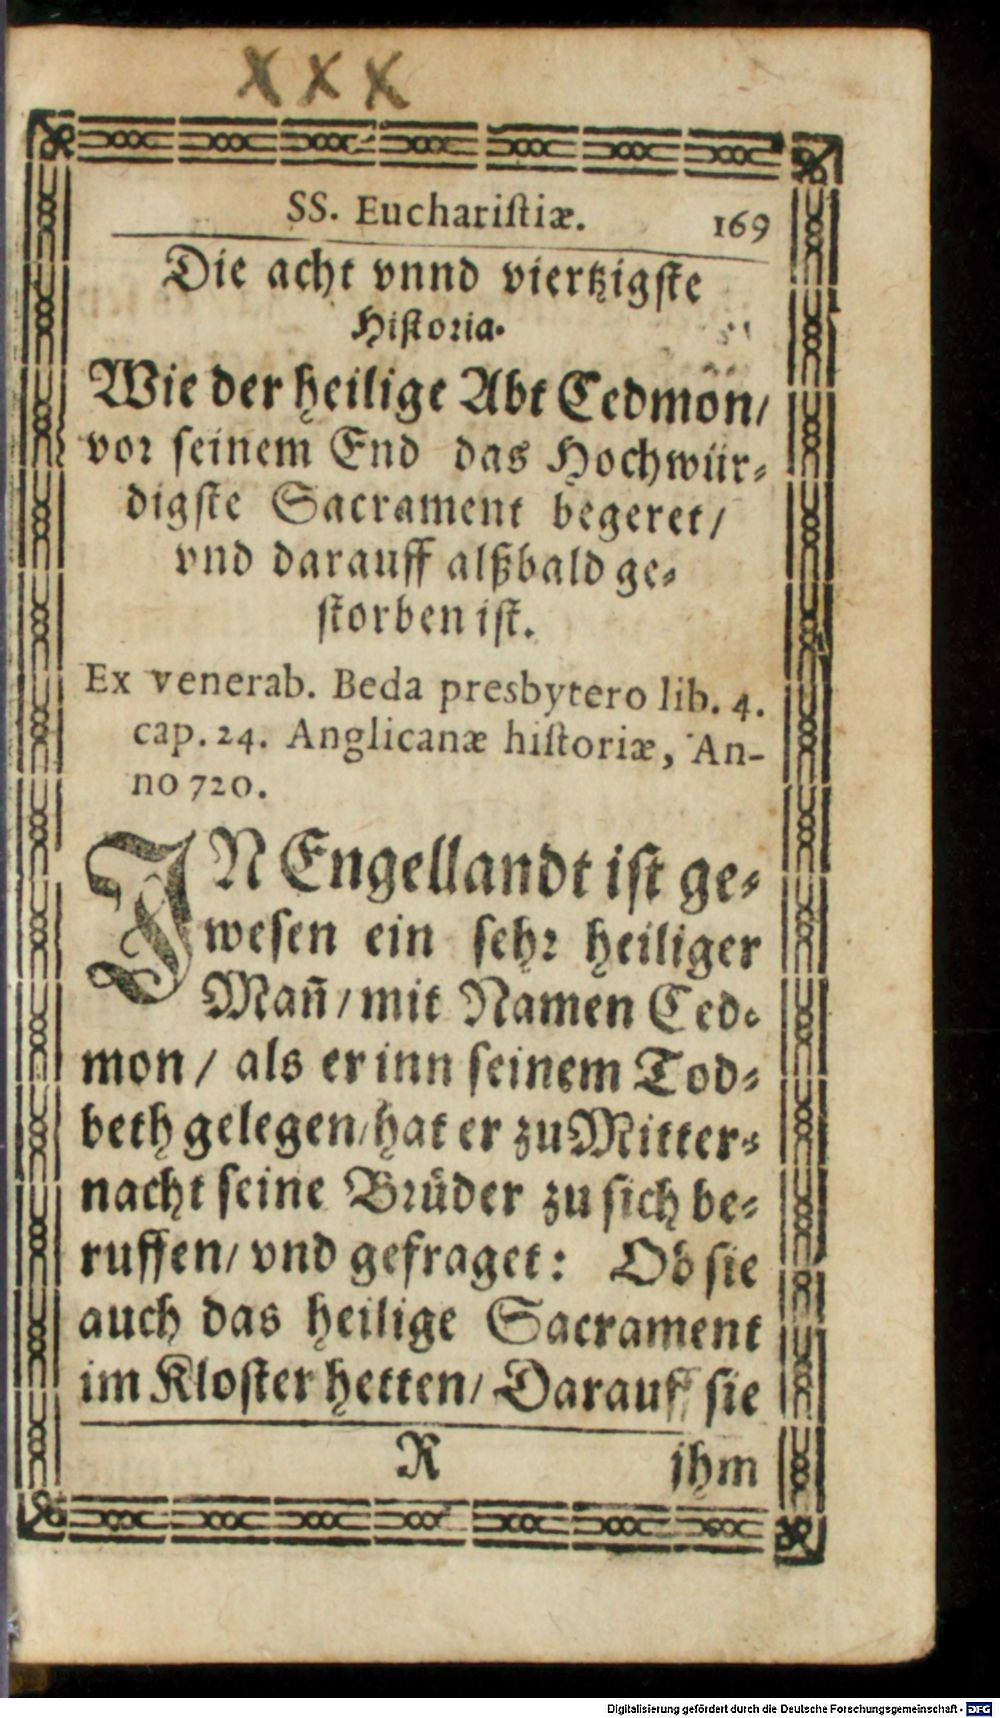 XXX
SS. Euchariſtiæ. 169
Die acht vnnd viertzigſte
Hiſtoria.
Wie der heilige Abt Cedmon/
vor ſeinem End das Hochwür-
digſte Sacrament begeret/
vnd darauff alßbald ge-
ſtorben iſt.
Ex venerab. Beda presbytero lib. 4.
cap. 24. Anglicanæ hiſtoriæ, An-
no 720.
IN Engellandt iſt ge-
weſen ein ſehr heiliger
Mañ/ mit Namen Ced-
mon/ als er inn ſeinem Tod-
beth gelegen/ hat er zu Mitter-
nacht ſeine Brüder zu ſich be-
ruffen/ vnd gefraget: Ob ſie
auch das heilige Sacrament
im Kloſter hetten/ Darauff ſie
R ihm
Digitalisierung gefördert durch die Deutsche Forschungsgemeinschaft - DFG